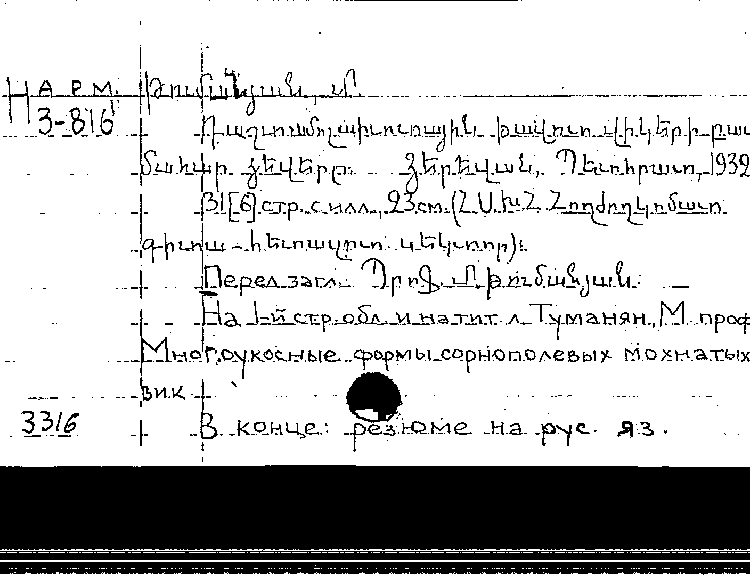 Н АРМ. Թումանյան, Մ.
3-816 Դաշտամոլախոտային թավոտ վիկերի բազ
մահար ձևերը. Յերեվան, Պետհրատ, 1932
31[6] стр. с илл., 23 см. (Հ.Ս.Խ.Հ. Հողժողկոմատ
գիտա-հետազոտ. սեկտոր):
Перед загл. Պրոֆ. Մ. Թումանյան.
На 1-й стр. обл. и на тит. л. Туманян, М. проф
Многоукосные формы сорнополевых мохнатых
вик
3316 В конце: резюме на рус. яз.